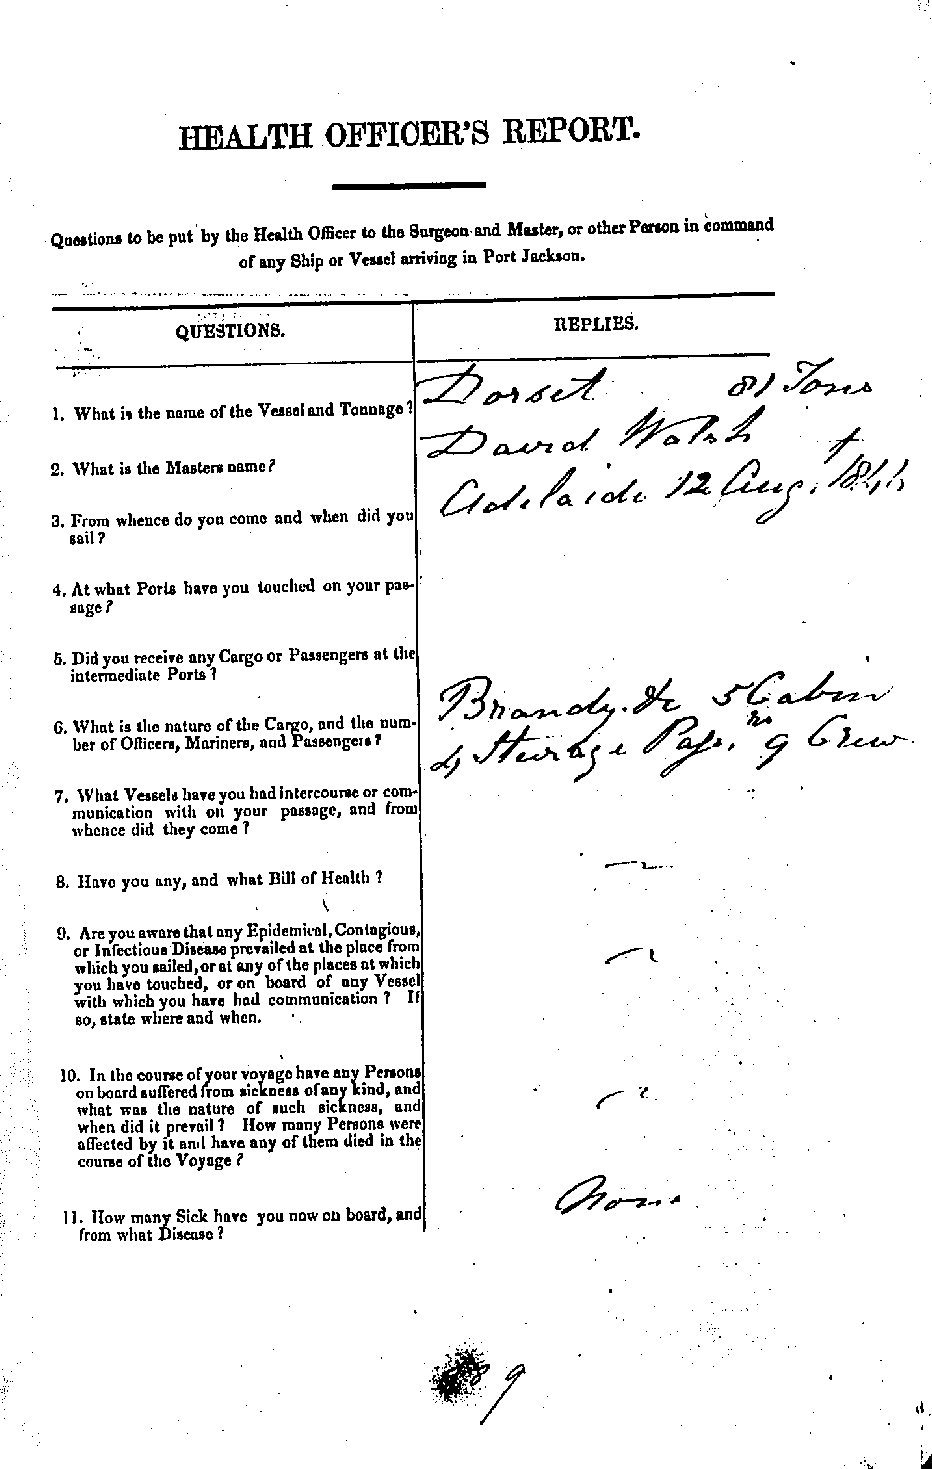 HEALTH OFFICER'S REPORT.
Questions to be put by the Health Officer to the Surgeon and Master, or other Person in command
of any Ship or Vessel arriving in Port Jackson.
QUESTIONS.
REPLIES.
1. What is the name of the Vessel and Tonnage?
Dorset 81 Tons
2. What is the Masters name?
David Walsh
3. From whence do you come and when did you
sail?
Adelaide 12 Augt 1844
4. At what Ports have you touched on your pas-
sage?
5. Did you receive any Cargo or Passengers at the
intermediate Ports?
6. What is the nature of the Cargo, and the num-
ber of Officers, Mariners, and Passengers?
Brandy &c 5 Cabin
4 Steerage Passrs 9 Crew
7. What Vessels have you had intercourse or com-
munication with on your passage, and from
whence did they come?
8. Have you any, and what Bill of Health?
9. Are you aware that any Epidemical, Contagious,
or Infectious Disease prevailed at the place from
which you sailed, or at any of the places at which
you have touched, or on board of any Vessel
with which you have had communication? If
so, state where and when.
10. In the course of your voyage have any Persons
on board suffered from sickness of any kind, and
what was the nature of such sickness, and
when did it prevail? How many Persons were
affected by it and have any of them died in the
course of the Voyage?
11. How many Sick have you now on board, and
from what Disease?
None
9